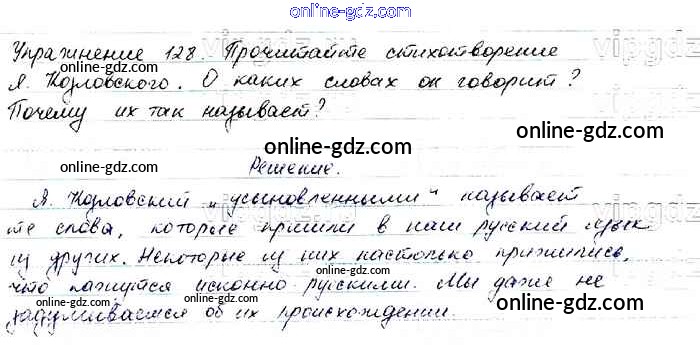 online-gdz.com
online-gdz.com
Упражнение 128. Прочитайте стихотворение
Я. Козловского. О каких словах он говорит?
Почему их так называет?
online-gdz.com
online-gdz.com
online-gdz.com
Решение.
Я. Козловский „усыновленными" называет
те слова, которые пришли в наш русский язык
из других. Некоторые из них настолько прижились,
что кажутся исконно русскими. Мы даже не
задумываемся об их происхождении.
online-gdz.com
online-gdz.com
online-gdz.com
online-gdz.com